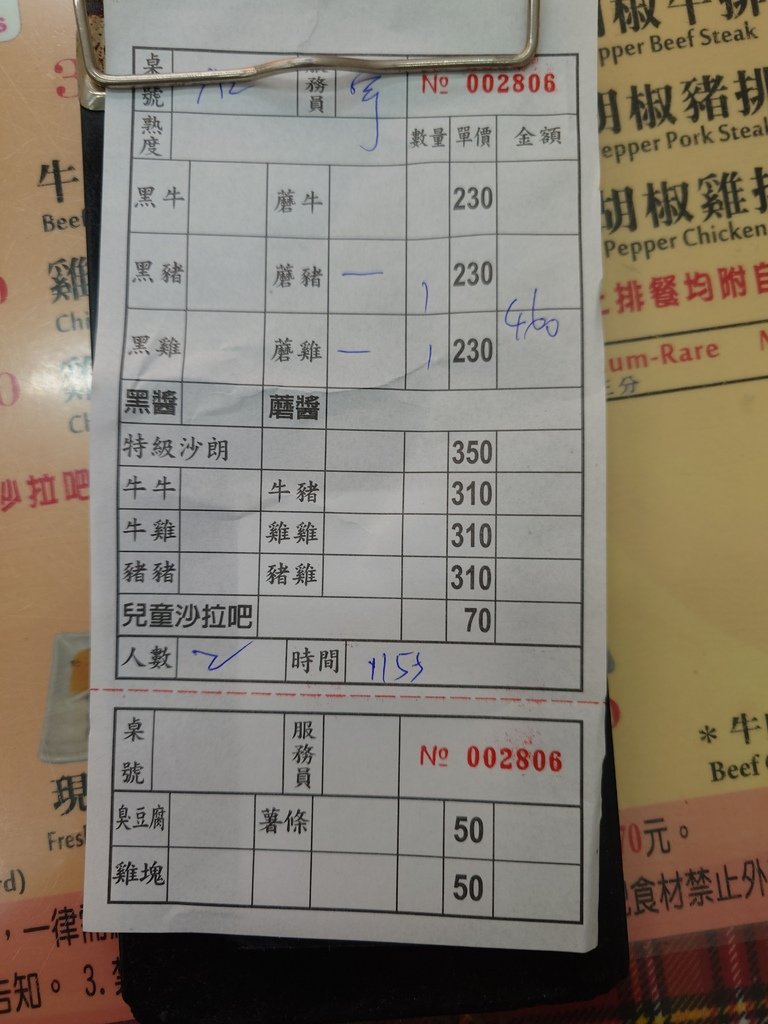 桌號 服務員 № 002806
熟度 數量 單價 金額
黑牛 蘑牛 230
黑豬 蘑豬 一 1 230
460
黑雞 蘑雞 一 1 230
黑醬 蘑醬
特級沙朗 350
牛牛 牛豬 310
牛雞 雞雞 310
豬豬 豬雞 310
兒童沙拉吧 70
人數 2 時間
桌號 服務員 № 002806
臭豆腐 薯條 50
雞塊 50
牛
Beef
雞
沙拉吧
現
一律
告知。3.
椒牛排
pper Beef Steak
胡椒豬排
epper Pork Steak
胡椒雞排
Pepper Chicken
排餐均附自
um-Rare
三分
*牛
Beef
70元。
食材禁止外